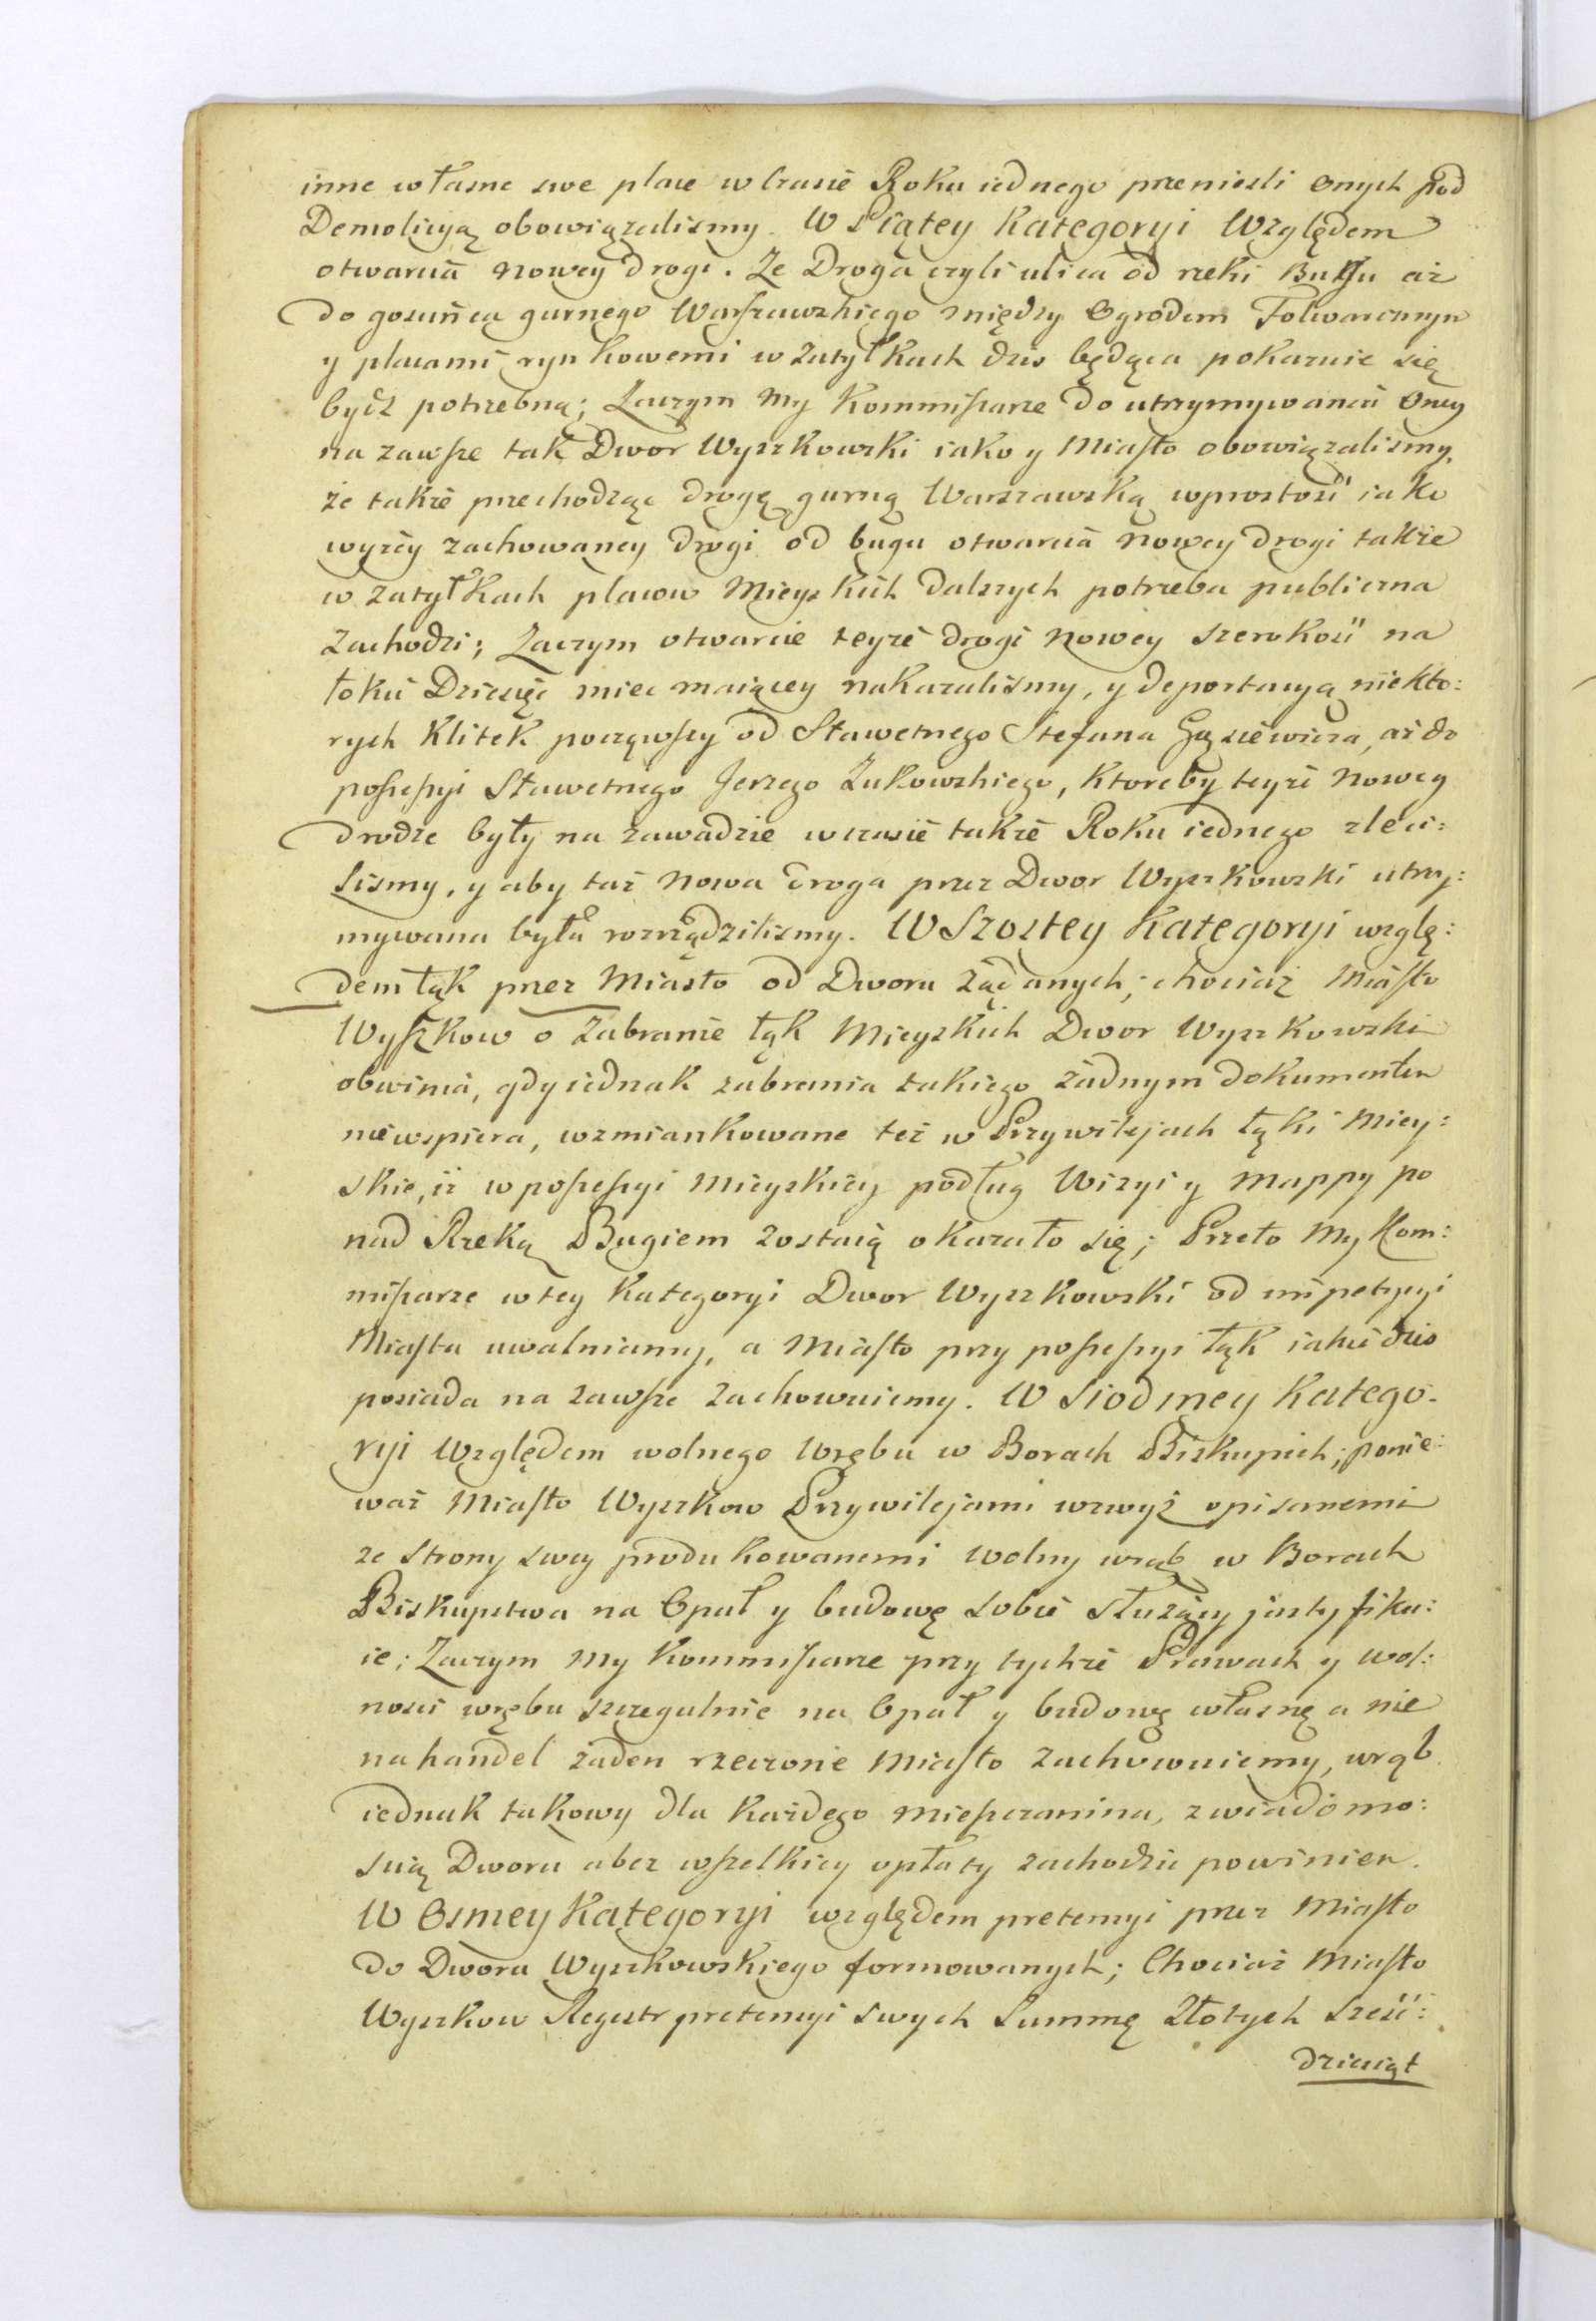 inne własne swe place w czasie Roku iednego przeniesli onych pod
Demolicyą obowiązalismy. W Piątey Kategoryi Względem
otwarcia nowey drogi. Ze Droga czyli ulica od rzeki Bugu aż
do gosuńca gurnego Warszawskiego między Ogrodem Folwarcznym
y placami rynkowemi w zatyłkach dzis będąca pokazuie się
bydz potrzebną; Zaczym My Kommissarze do utrzymywania Oney
na zawsze tak Dwor Wyszkowski iako y Miasto obowiązalismy,
że także przechodząc drogę gurną Warszawską wprostosci iako
wyżey zachowaney drogi od bugu otwarcia Nowey drogi także
w zatyłkach placow Mieyskich dalszych potrzeba publiczna
zachodzi; Zaczym otwarcie teyże drogi nowey szerokosci na
łokci Dziesięć miec maiącey nakazalismy, y deportacyą niekto:
rych Klitek począwszy od Sławetnego Stefana Gąsiewicza, aż do
possessyi Sławetnego Jerzego Zukowskiego, Ktoreby teyże nowey
drodze były na zawadzie w czasie także Roku iednego zleci:
lismy, y aby taż Nowa droga przez Dwor Wyszkowski utrzy:
mywana była rozrządzilismy. W Szostey Kategoryi wzglę:
dem Łąk przez Miasto od Dworu żądanych; chociaż Miasto
Wyszkow o zabranie łąk Mieyskich Dwor Wyszkowski
obwinia, gdy iednak zabrania takiego żadnym dokumentem
nie wspiera, wzmiankowane też w Przywilejach Łąki Miey:
skie, iż w possessyi Mieyskiey podług Wizyi y Mappy po
nad Rzeką Bugiem zostaią okazało się; Przeto My Kom:
missarze w tey Kategoryi Dwor Wyszkowski od impetycyi
Miasta uwalniamy, a Miasto przy possessyi Łąk iakie dzis
posiada na zawsze zachowuiemy. W Siodmey Katego-
ryi Względem wolnego Wrębu w Borach Biskupich; ponie:
waż Miasto Wyszkow Przywilejami wzwyż opisanemi
ze strony swey produkowanemi wolny wrąb w Borach
Biskupstwa na Opał y budowę sobie służący justyfiku:
ie; Zaczym My Kommissarze przy tychże Prawach y wol:
nosci wrębu szczegulnie na Opał y budowę własnę a nie
na handel żaden rzeczone Miasto zachowuiemy, wrąb
iednak takowy dla każdego Mieszczanina, z wiadomo:
scią Dworu a bez wszelkiey opłaty zachodzic powinien.
W Osmey Kategoryi względem pretensyi przez Miasto
do Dworu Wyszkowskiego formowanych; Chociaż Miasto
Wyszkow Regestr pretensyi swych Summę Złotych Szesć:
dziesiąt